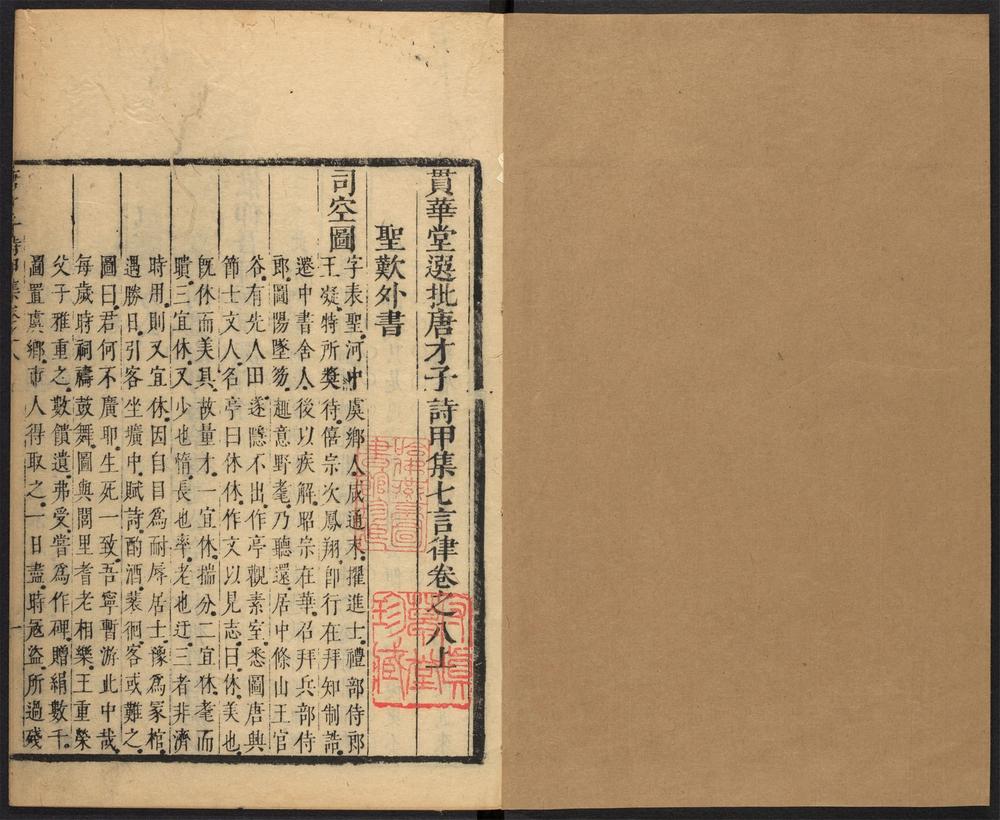 貫華堂選批唐才子詩甲集七言律卷之八上
聖歎外書
司空圖
字表聖河中虞鄉人咸通末擢進士禮部侍郎
王凝特所奬待僖宗次鳳翔卽行在拜知制誥
遷中書舍人後以疾解昭宗在華召拜兵部侍
郎圖陽墜笏趣意野耄乃聽還居中條山王官
谷有先人田遂隱不出作亭觀素室悉圖唐興
節士文人名亭曰休休作文以見志曰休美也
旣休而美具故量才一宜休揣分二宜休耄而
聵三宜休又少也惰長也率老也迂三者非濟
時用則又宜休因自目爲耐辱居士豫爲冢棺
遇勝日引客坐壙中賦詩酌酒裴徊客或難之
圖曰君何不廣耶生死一致吾寧暫游此中哉
每歲時祠禱鼓舞圖與閭里耆老相樂王重榮
父子雅重之數饋遺弗受嘗爲作碑贈絹數千
圖置虞鄉市人得取之一日盡時寇盜所過殘
一